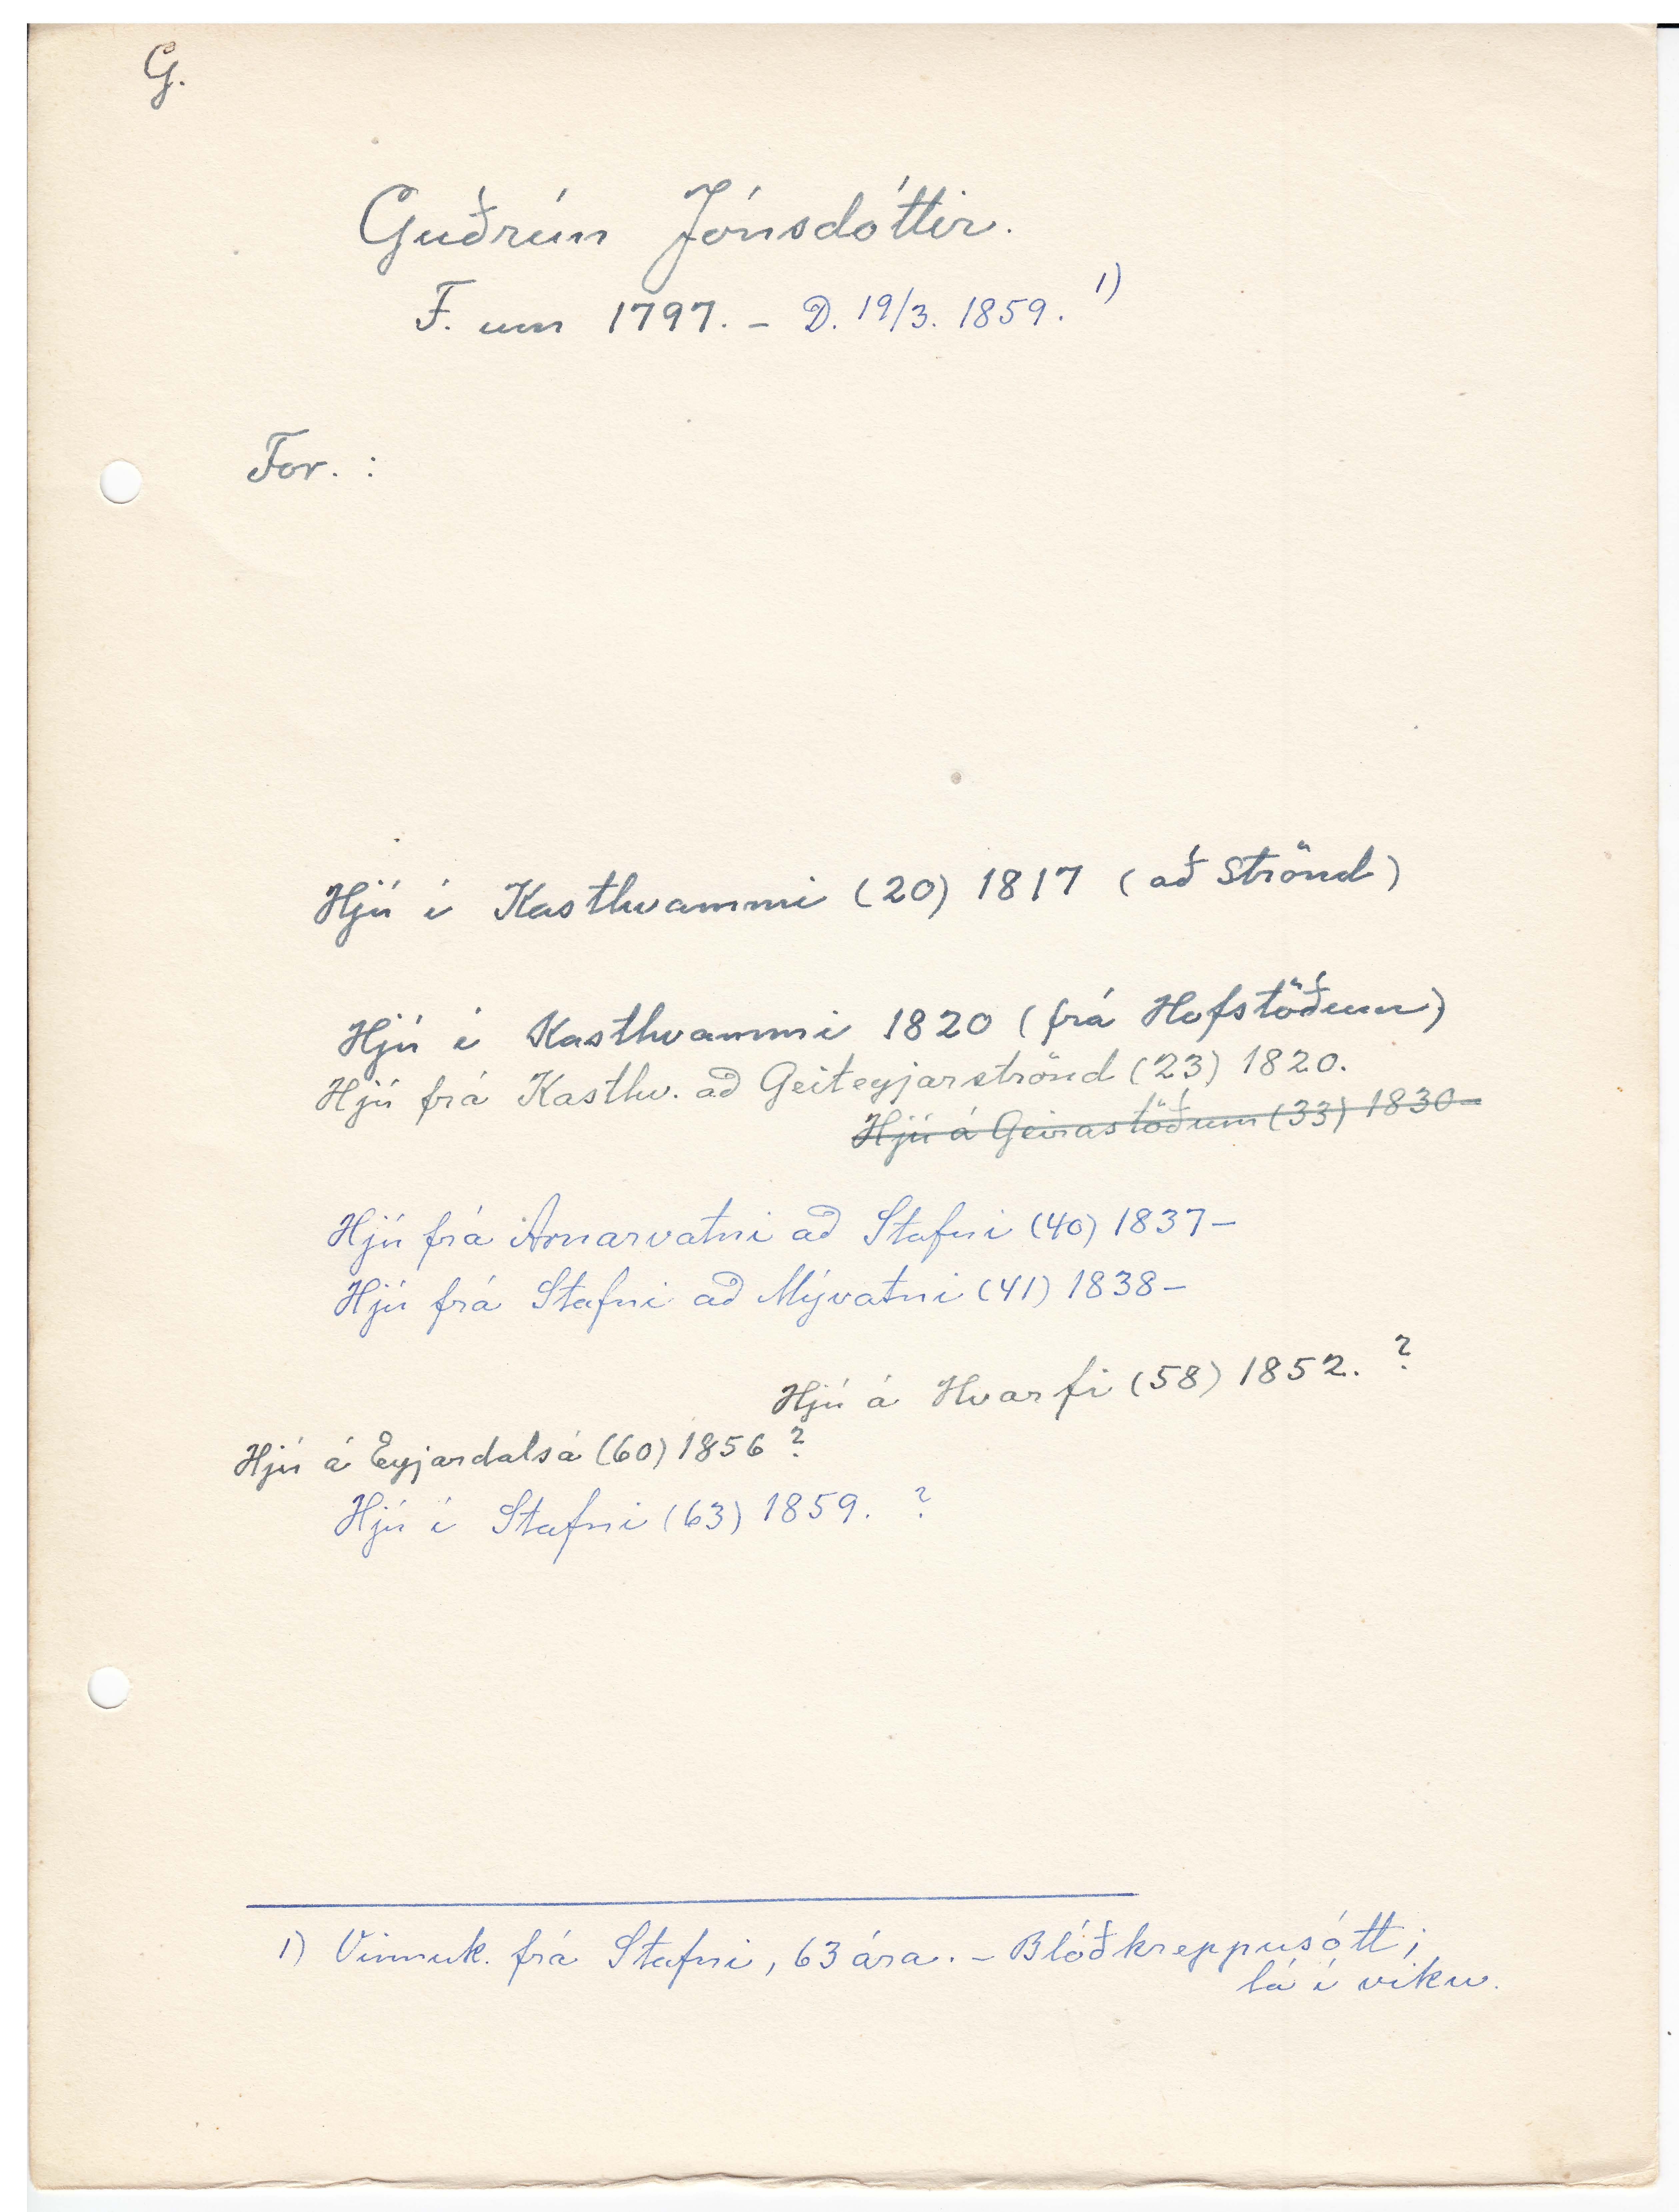 G.
Guðrún Jónsdóttir.
F. um 1797. - D. 19/3. 1859. 1)
For. :
Hjú í Kasthvammi (20) 1817 (að Strönd)
Hjú í Kasthvammi 1820 (frá Hofstöðum)
Hjú frá Kasthv. að Geiteyjarströnd (23) 1820.
Hjú á Geirastöðum (33) 1830-
Hjú frá Arnarvatni að Stafni (40) 1837-
Hjú frá Stafni að Mývatni (41) 1838-
Hjú á Hvarfi (58) 1852. ?
Hjú á Eyjardalsá (60) 1856 ?
Hjú í Stafni (63) 1859. ?
1) Vinnuk. frá Stafni, 63 ára. - Blóðkreppusótt;
lá í viku.